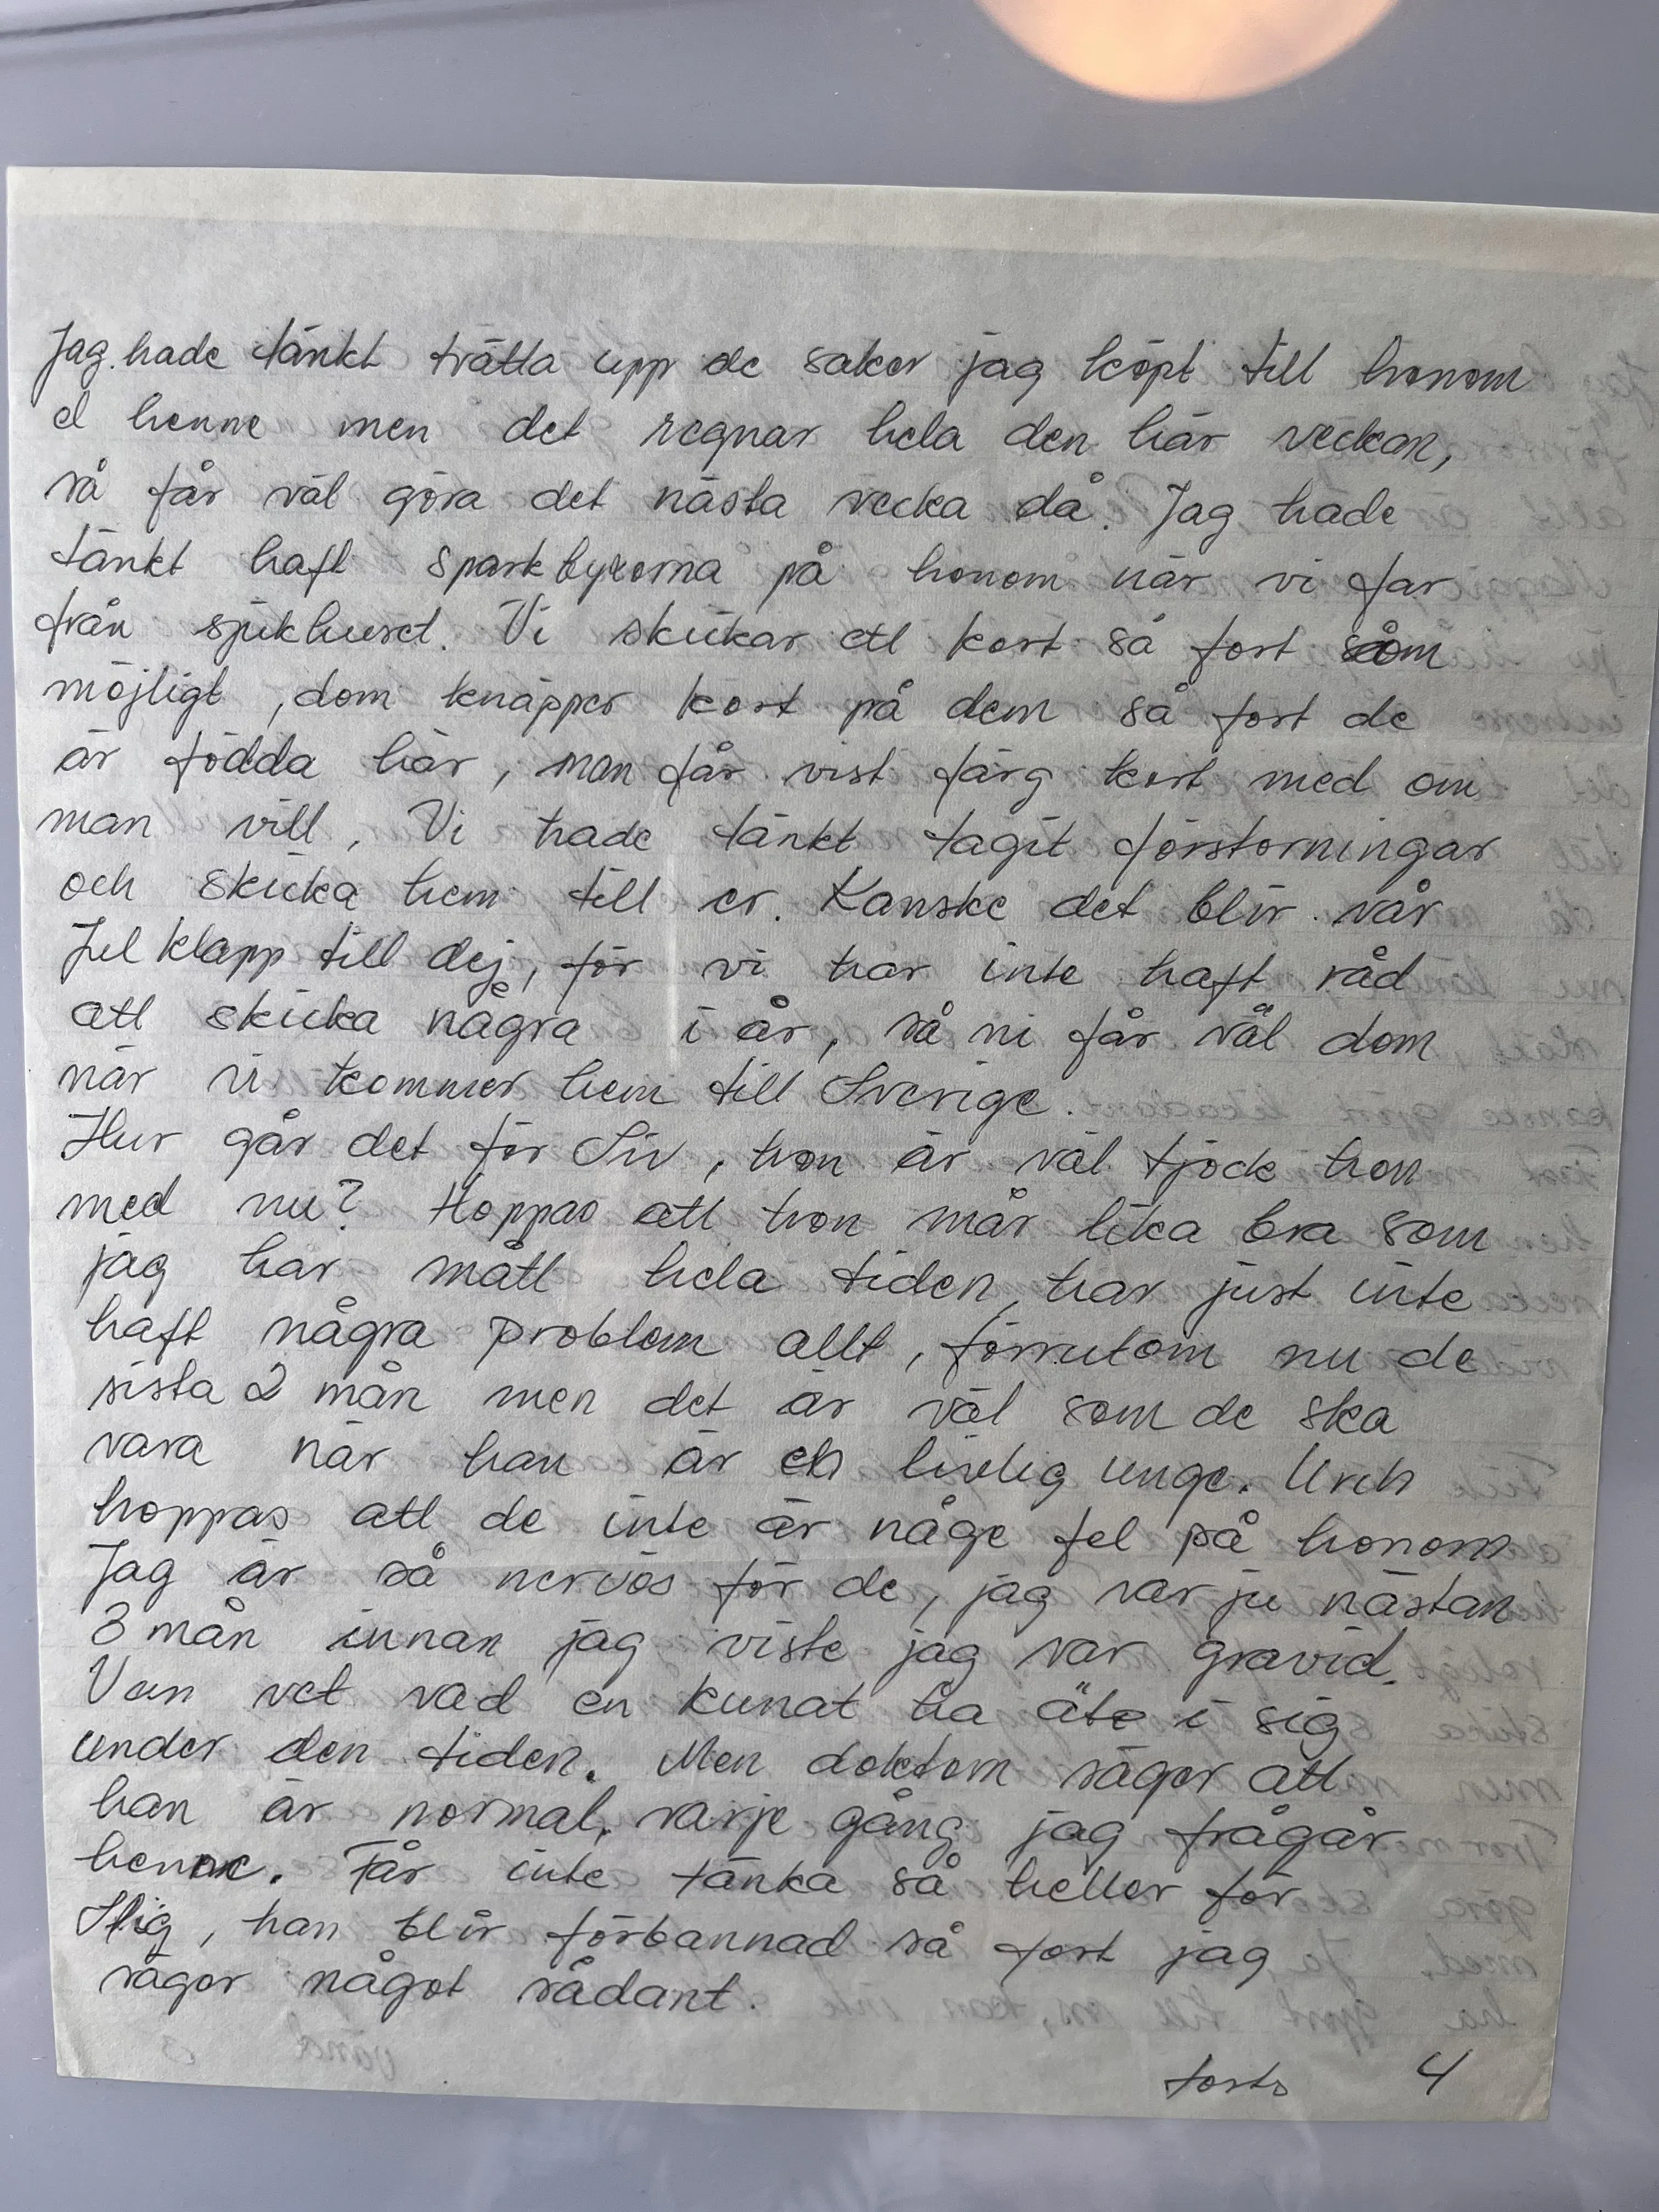 Jag hade tänkt tvätta upp de saker jag köpt till honom
el henne men det regnar hela den här veckan,
så får väl göra det nästa vecka då. Jag hade
tänkt haft sparkbyxorna på honom när vi far
från sjukhuset. Vi skickar ett kort så fort som
möjligt, dom knäpper kort på dem så fort de
är födda här, man får vist färg kort med om
man vill. Vi hade tänkt tagit förstorningar
och skicka hem till er. Kanske det blir vår
Jul klapp till dej, för vi har inte haft råd
att skicka några i år, så ni får väl dom
när vi kommer hem till Sverige.
Hur går det för Siv, hon är väl tjock hon
med nu? Hoppas att hon mår lika bra som
jag har mått hela tiden, har just inte
haft några problem allt, förrutom nu de
sista 2 mån men det är väl som de ska
vara när han är en livlig unge. Urch
hoppas att de inte är någe fel på honom
Jag är så nervös för de, jag var ju nästan
3 mån innan jag viste jag var gravid.
Vem vet vad en kunat ha äte i sig
under den tiden. Men doktorn säger att
han är normal, varje gång jag frågår
henne. Får inte tänka så heller för
Stig, han blir förbannad så fort jag
säger något sådant.
forts 4
vänd 3